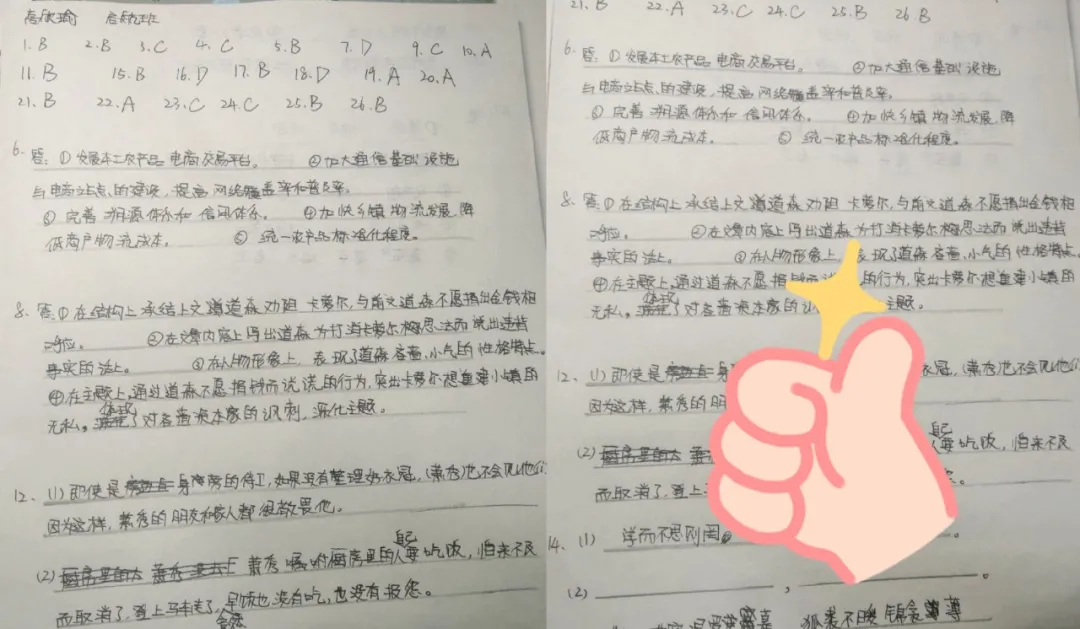 启航班
1. B 2. B 3. C 4. C 5. B 7. D 9. C 10. A
11. B 15. B 16. D 17. B 18. D 19. A 20. A
21. B 22. A 23. C 24. C 25. B 26. B
6. 答:①发展本土农产品电商交易平台。 ②加大通信基础设施
与电商站点的建设,提高网络覆盖率和普及率。
③完善溯源体系和信用体系。 ④加快乡镇物流发展,降
低商户物流成本。 ⑤统一农产品标准化程度。
8. 答:①在结构上承结上文道森劝阻卡萝尔,与前文道森不愿捐出金钱相
对应。 ②在文章内容上写出道森为打消卡萝尔想法而说出违背
事实的话。 ③在人物形象上,表现了道森吝啬、小气的性格特点。
④在主题上,通过道森不愿捐钱而说谎的行为,突出卡萝尔想重建小镇的
无私。体现了对资本家的讽刺,深化主题。
12. (1)即使是身旁的侍卫,如果没有整理好衣冠,(萧秀)也不会见(他们)
因为这样,萧秀的朋友和家人都很敬畏他。
(2) 萧秀 厨房里的人 自己 吃饭,但来不及
而取消了,登上马车走了,早饭也没有吃,也没有报怨。
21. B 22. A 23. C 24. C 25. B 26. B
6. 答:①发展本土农产品电商交易平台。 ②加大通信基础设施
与电商站点的建设,提高网络覆盖率和普及率。
③完善溯源体系和信用体系。 ④加快乡镇物流发展,降
低商户物流成本。 ⑤统一农产品标准化程度。
8. 答:①在结构上承结上文道森劝阻卡萝尔,与前文道森不愿捐出金钱相
对应。 ②在文章内容上写出道森为打消卡萝尔想法而说出违背
事实的话。 ③在人物形象上,表现了道森吝啬、小气的性格特点。
④在主题上,通过道森不愿捐钱 的行为,突出卡萝尔想重建小镇的
无私。体现了对 主题。
12. (1)即使是身 衣冠,(萧秀)也不会见(他们)
因为这样,萧秀的朋
(2) 自己 吃饭,但来不及
而取消了,登上
14. (1) 学而不思则罔。
(2) , 。
狐裘不暖锦衾薄